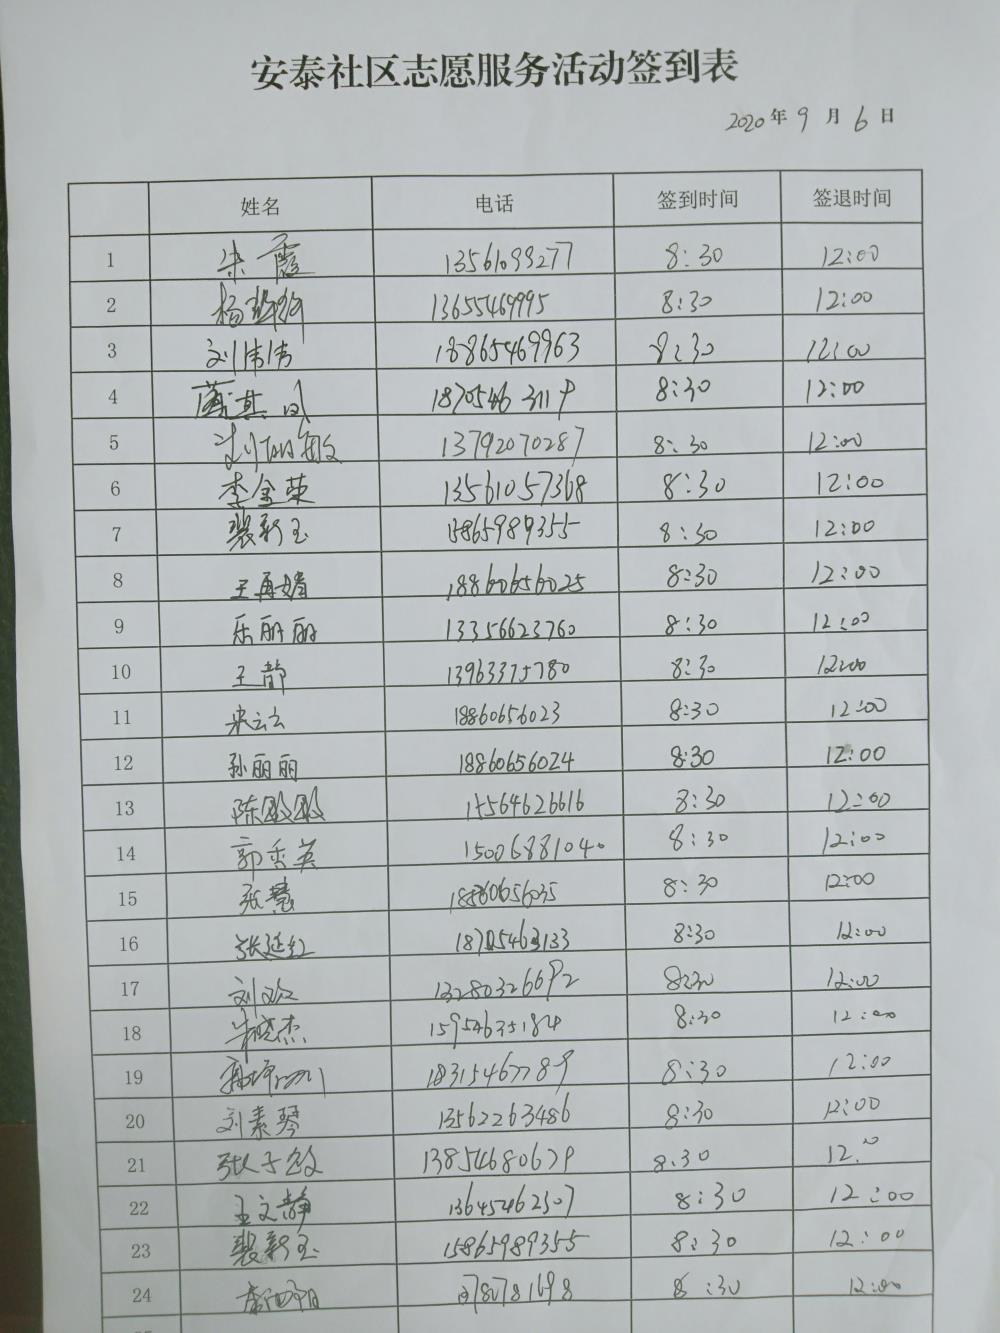 安泰社区志愿服务活动签到表
2020年9月6日
姓名 电话 签到时间 签退时间
1 朱霞 13561099277 8:30 12:00
2 杨 13655469995 8:30 12:00
3 刘伟伟 18865469963 8:30 12:00
4 其凤 18705463119 8:30 12:00
5 刘丽敏 13792070287 8:30 12:00
6 李金荣 13561057368 8:30 12:00
7 裴新玉 15865989355 8:30 12:00
8 王再婧 18860656025 8:30 12:00
9 乐丽丽 13356623760 8:30 12:00
10 王静 13963375780 8:30 12:00
11 宋云云 18860656023 8:30 12:00
12 孙丽丽 18860656024 8:30 12:00
13 陈殿殿 15564626616 8:30 12:00
14 郭秀英 15006881040 8:30 12:00
15 张慧 18860656035 8:30 12:00
16 张延红 18705463133 8:30 12:00
17 刘欢 13280326692 8:30 12:00
18 朱晓杰 15954635184 8:30 12:00
19 18315467789 8:30 12:00
20 刘素琴 13562263486 8:30 12:00
21 张子敛 13854680679 8:30 12:00
22 王文静 13645462507 8:30 12:00
23 裴新玉 15865989355 8:30 12:00
24 8:30 12:00